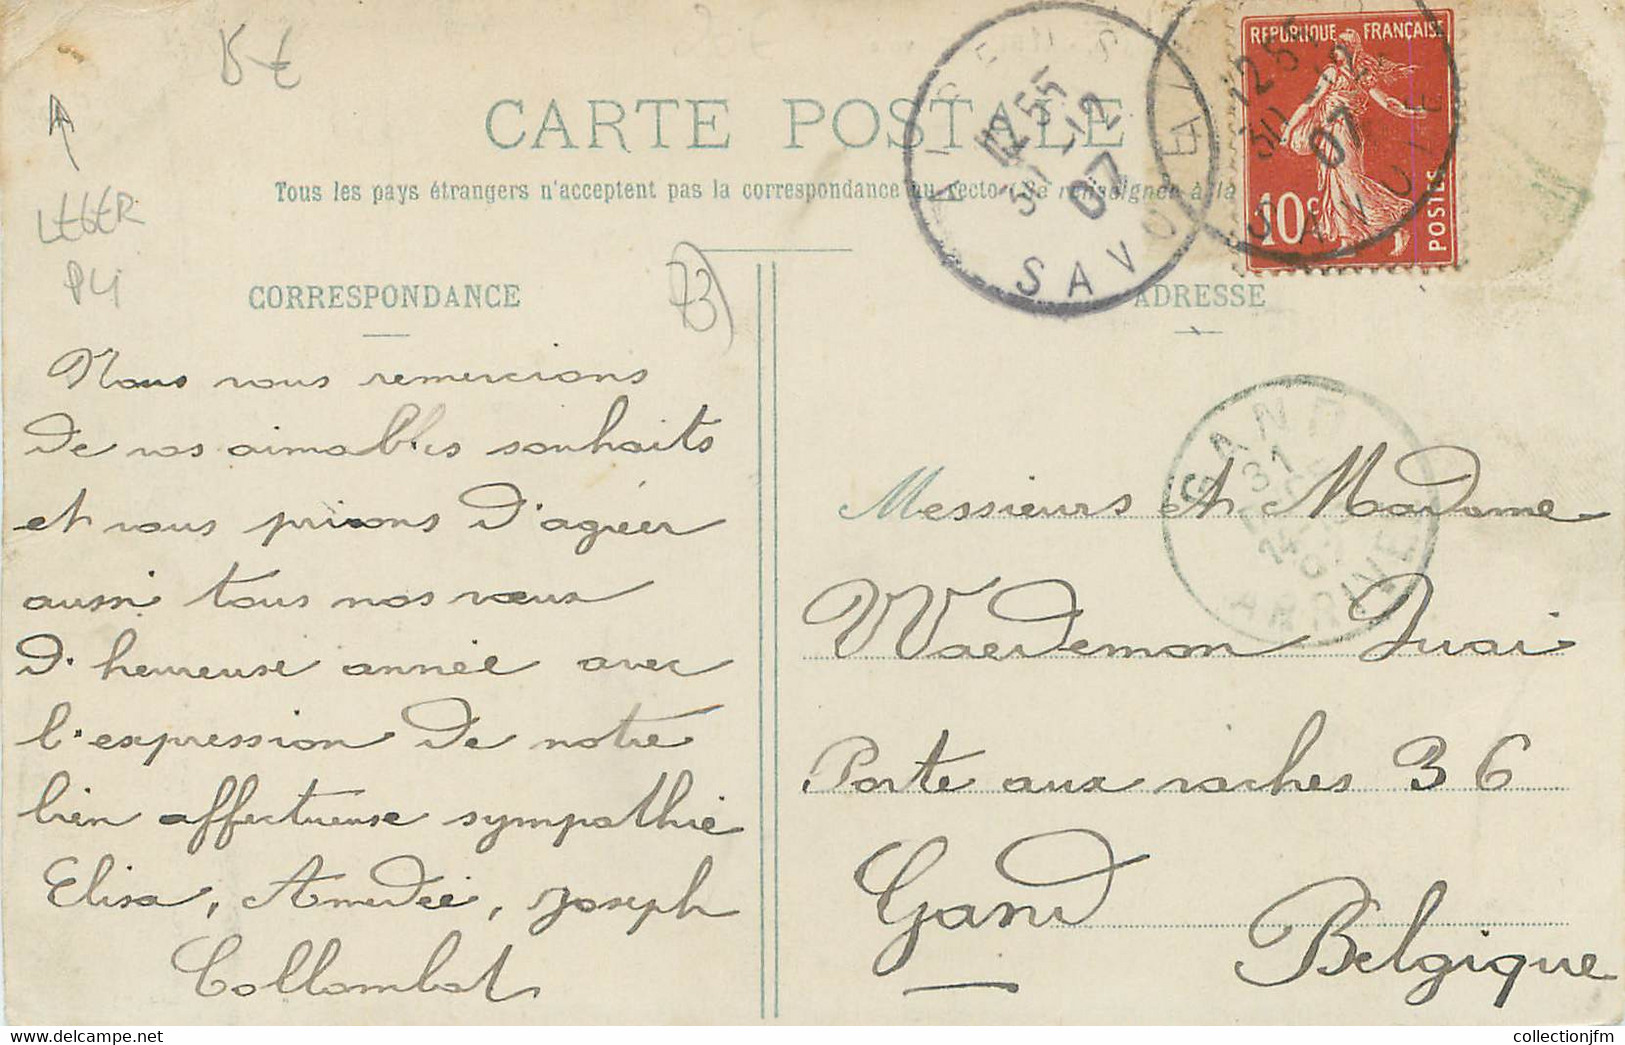 5 €
LEGER
P4
73
CARTE POSTALE
Tous les pays étrangers n'acceptent pas la correspondance au recto (Se renseigner à la
CORRESPONDANCE
ADRESSE
REPUBLIQUE FRANÇAISE
10c
POSTES
12 55
30 -12
07
SAVOIE
12 5
30 -12
07
SAVOIE
GAND
31
DEC
14
07
ARRIVEE
Nous vous remercions
de vos aimables souhaits
et vous prions d'agréer
aussi tous nos vœux
d'heureuse année avec
l'expression de notre
bien affectueuse sympathie
Elisa, Amédée, Joseph
Collombat
Messieurs et Madame
Waerdemon Quai
Porte aux vaches 36
Gand
Belgique
collectionjfm